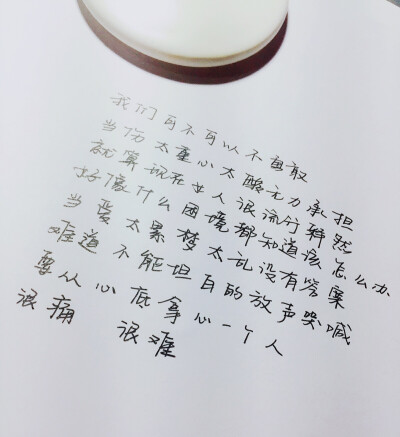 我们可不可以不勇敢
当伤太重心太酸无力承担
就算现在女人很流行释然
好像什么困境都知道该怎么办
当爱太累梦太乱没有答案
难道不能坦白的放声哭喊
要从心底拿心一个人
很痛 很难